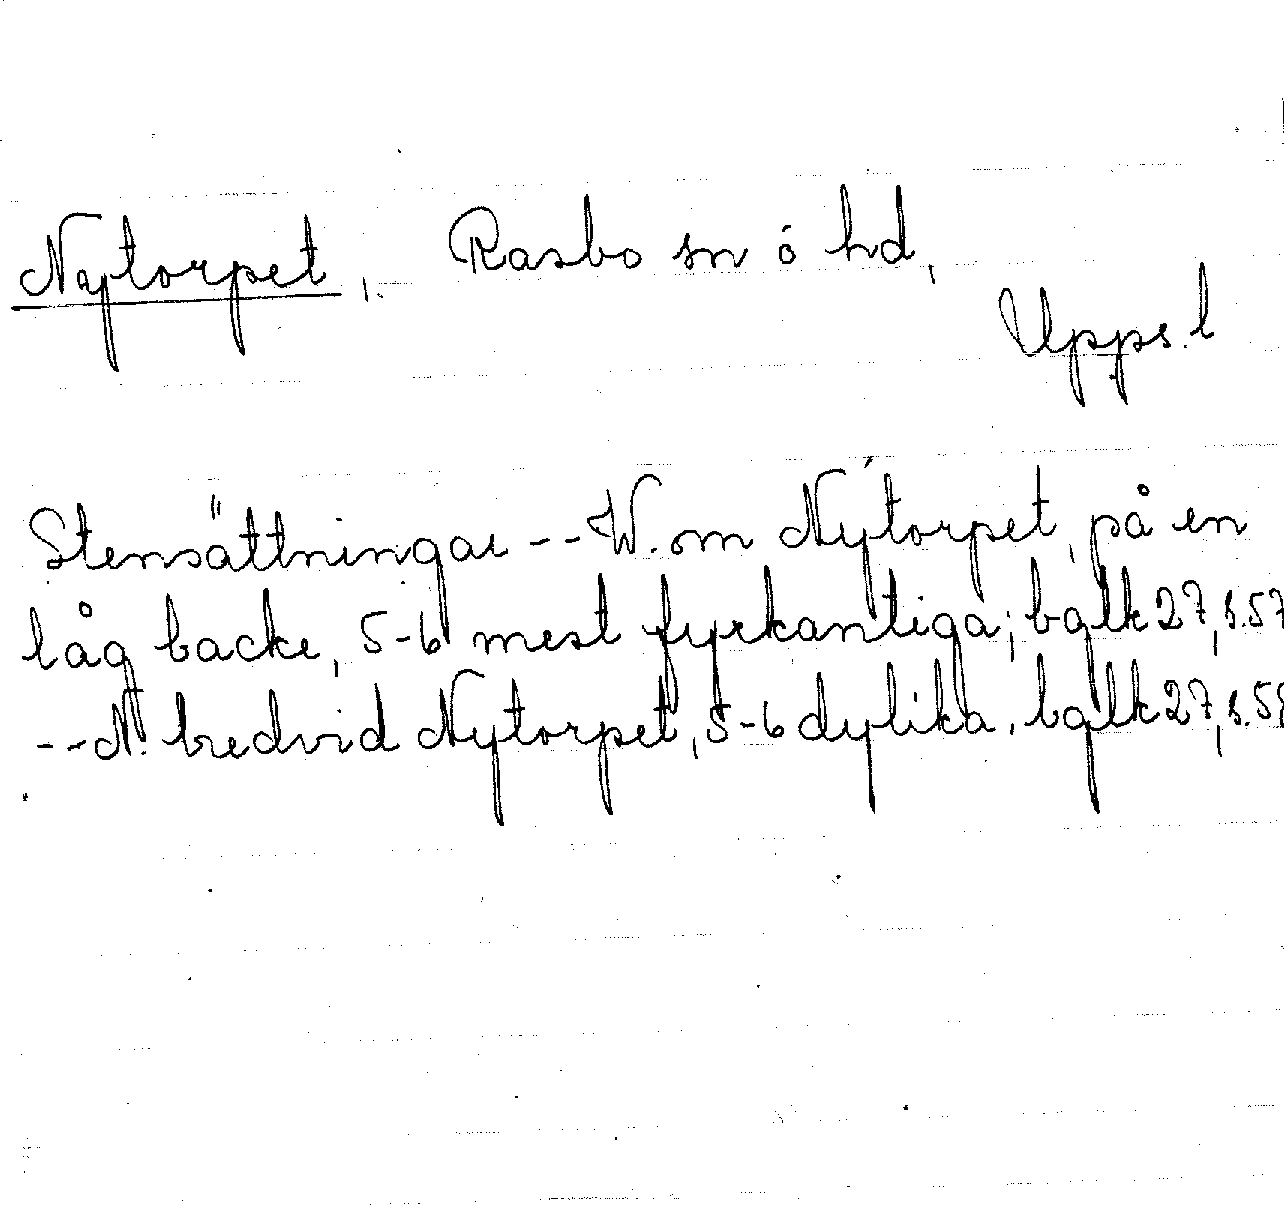 Nytorpet, Rasbo sn ó hd,
Upps. l
Stensättningar -- W. om Nytorpet, på en
låg backe, 5-6 mest fyrkantiga; balk 27, s. 57
-- N. bredvid Nytorpet, 5-6 dylika. balk 27, s.